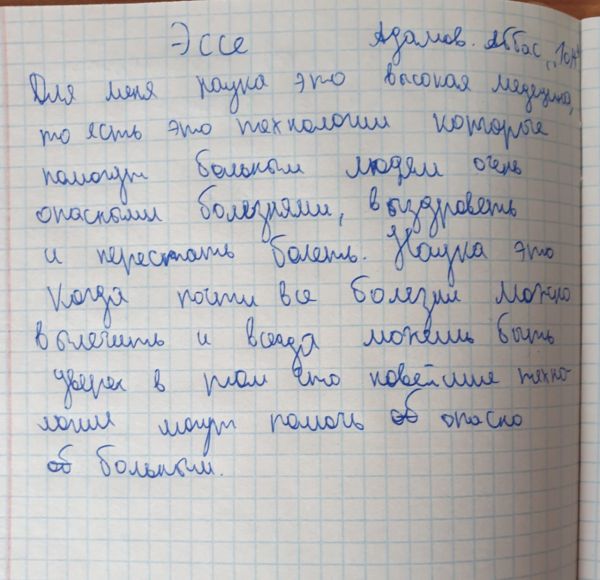 Эссе Адамов. Аббас „10А"
Для меня наука это высокая медецина,
то есть это технологии которые
помогут больным людям очень
опасными болезнями, выздроветь
и перестать болеть. Наука это
когда почти все болезни можно
вылечить и всегда можешь быть
уверен в том что новейшие техно-
логии могут помочь опасно
больным.